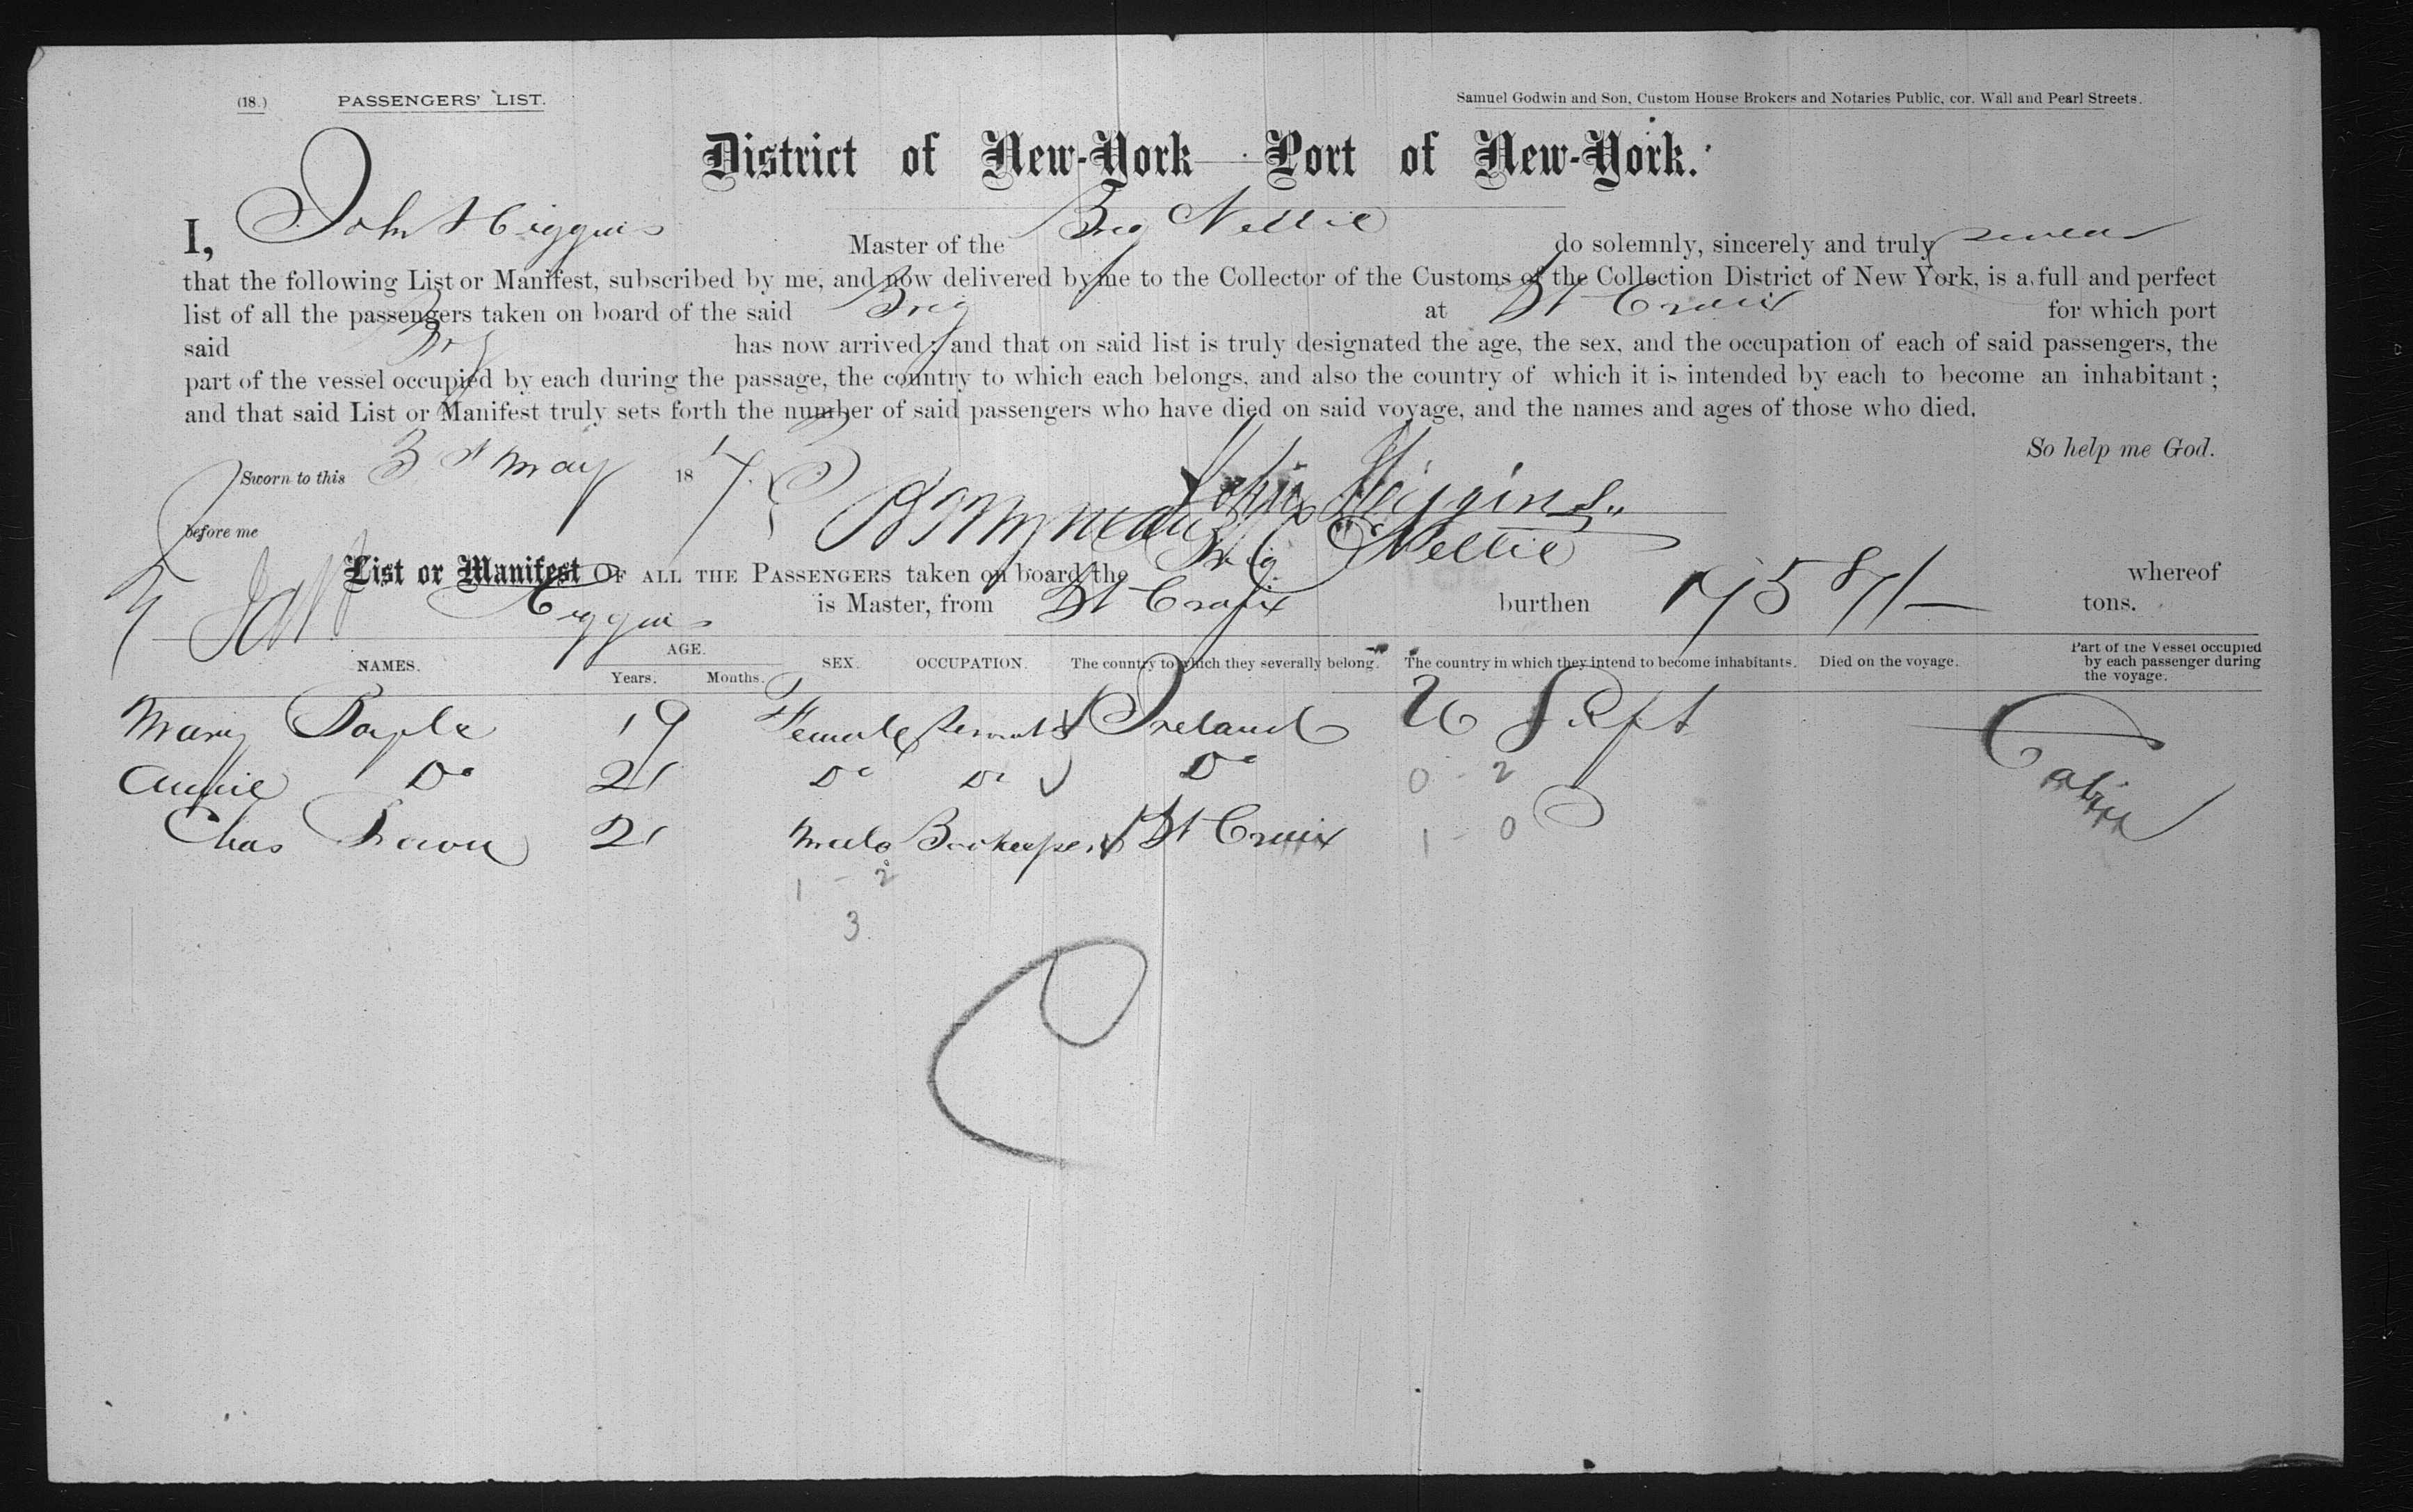 (18.) PASSENGERS' LIST. Samuel Godwin and Son, Custom House Brokers and Notaries Public, cor. Wall and Pearl Streets.
District of New-York — Port of New-York.
I, John Higgins Master of the Brig Nellie do solemnly, sincerely and truly swear
that the following List or Manifest, subscribed by me, and now delivered by me to the Collector of the Customs of the Collection District of New York, is a full and perfect
list of all the passengers taken on board of the said Brig at St Croix for which port
said Brig has now arrived; and that on said list is truly designated the age, the sex, and the occupation of each of said passengers, the
part of the vessel occupied by each during the passage, the country to which each belongs, and also the country of which it is intended by each to become an inhabitant;
and that said List or Manifest truly sets forth the number of said passengers who have died on said voyage, and the names and ages of those who died.
So help me God.
Sworn to this May 18 John Higgins
before me
List or Manifest OF ALL THE PASSENGERS taken on board the Brig "Nellie" whereof
Higgins is Master, from St Croix burthen 175 tons.
NAMES. AGE. Years. Months. SEX. OCCUPATION. The country to which they severally belong. The country in which they intend to become inhabitants. Died on the voyage. Part of the Vessel occupied by each passenger during the voyage.
Mary 19 Female Servant Ireland U S Cabin
Annie Do 21 Do Do Do 0 - 2
Chas Brown 21 Male Bookeeper St Croix 1 - 0
1 - 2
3